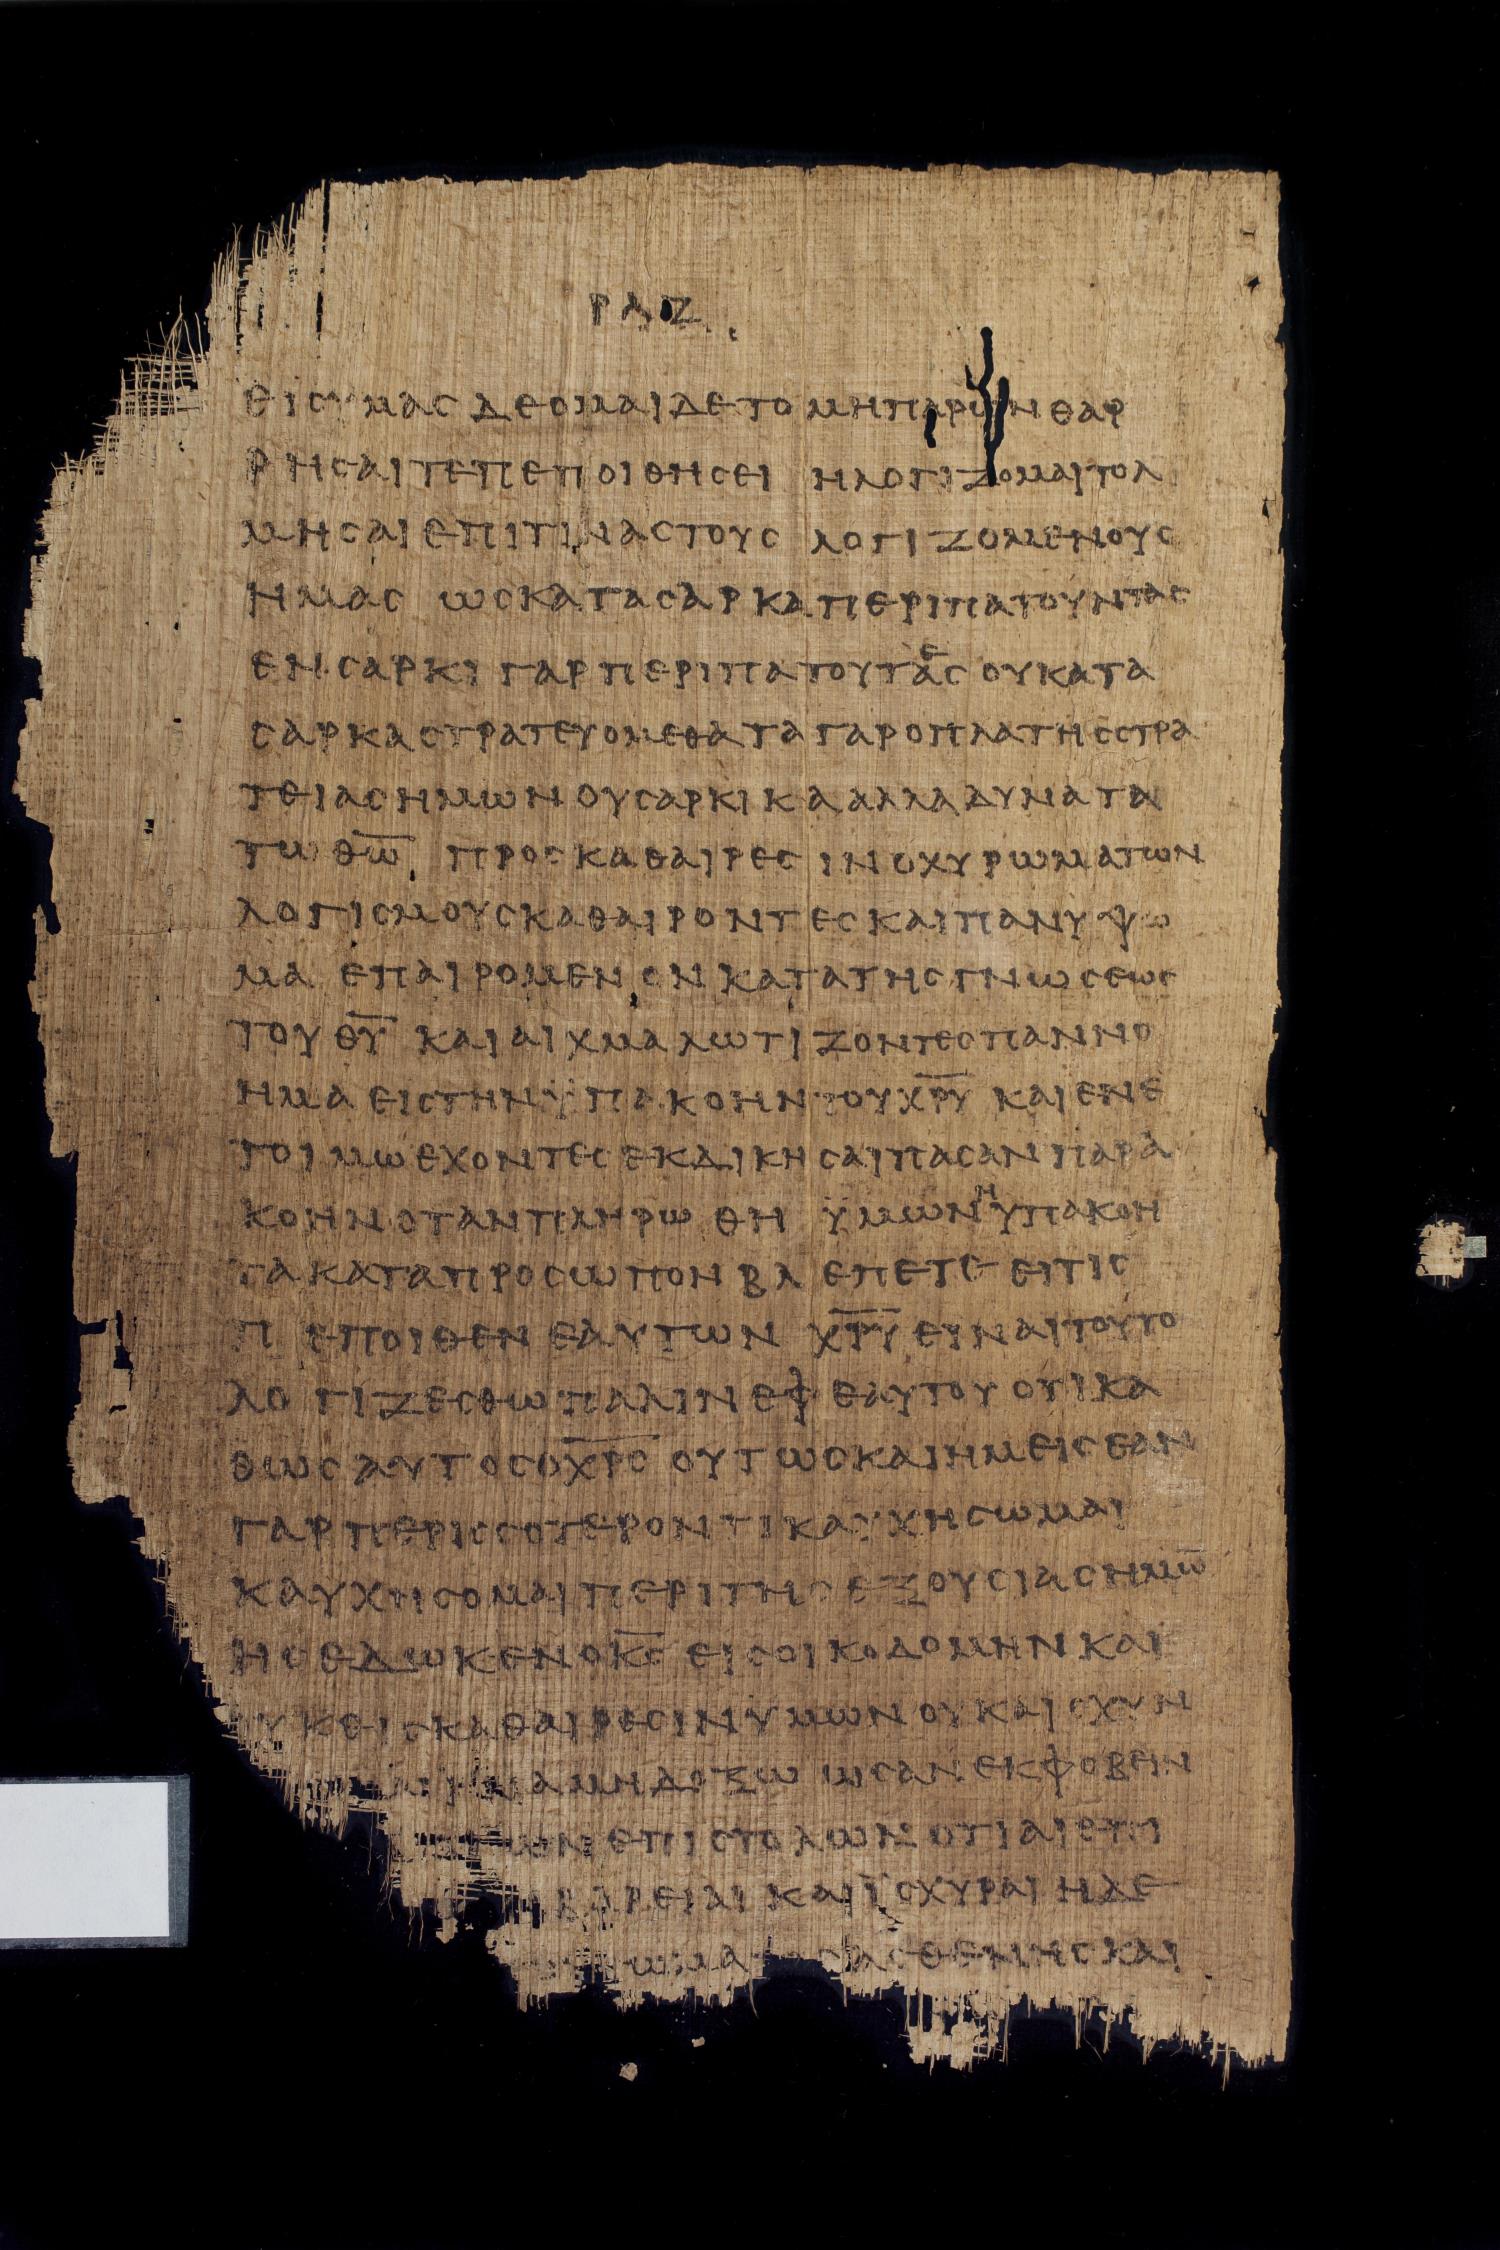 ΡΛΖ
ΕΙϹΥΜΑϹ ΔΕΟΜΑΙΔΕΤΟ ΜΗΠΑΡΩΝ ΘΑΡ
ΡΗϹΑΙΤΕΠΕΠΟΙΘΗϹΕΙ ΗΛΟΓΙΖΟΜΑΙΤΟΛ
ΜΗϹΑΙΕΠΙΤΙΝΑϹΤΟΥϹ ΛΟΓΙΖΟΜΕΝΟΥϹ
ΗΜΑϹ ΩϹΚΑΤΑϹΑΡΚΑΠΕΡΙΠΑΤΟΥΝΤΑϹ
ΕΝϹΑΡΚΙ ΓΑΡΠΕΡΙΠΑΤΟΥΤΑ`Ε´Ϲ ΟΥΚΑΤΑ
ϹΑΡΚΑϹΤΡΑΤΕΥΟΜΕΘΑΤΑΓΑΡΟΠΛΑΤΗϹϹΤΡΑ
ΤΕΙΑϹΗΜΩΝ ΟΥϹΑΡΚΙΚΑΑΛΛΑΔΥΝΑΤΑ
ΤΩ Θ̅Ω̅ ΠΡΟϹΚΑΘΑΙΡΕϹΙΝΟΧΥΡΩΜΑΤΩΝ
ΛΟΓΙϹΜΟΥϹΚΑΘΑΙΡΟΝΤΕϹΚΑΙΠΑΝΥΨΩ
ΜΑ ΕΠΑΙΡΟΜΕΝΟΝΚΑΤΑΤΗϹΓΝΩϹΕΩϹ
ΤΟΥ Θ̅Υ̅ ΚΑΙΑΙΧΜΑΛΩΤΙΖΟΝΤΕϹΠΑΝΝΟ
ΗΜΑ ΕΙϹΤΗΝΫΠΑΚΟΗΝΤΟΥΧ̅Ρ̅Υ̅ ΚΑΙΕΝΕ
ΤΟΙΜΩΕΧΟΝΤΕϹΕΚΔΙΚΗϹΑΙΠΑϹΑΝΠΑΡΑ
ΚΟΗΝΟΤΑΝΠΛΗΡΩΘΗ ΫΜΩΝ`Η´ΥΠΑΚΟΗ
ΤΑΚΑΤΑΠΡΟϹΩΠΟΝΒΛΕΠΕΤΕ ΕΙΤΙϹ
ΠΕΠΟΙΘΕΝ ΕΑΥΤΩΝ Χ̅Ρ̅Υ̅ ΕΙΝΑΙΤΟΥΤΟ
ΛΟΓΙΖΕϹΘΩΠΑΛΙΝΕΦ ΕΑΥΤΟΥΟΤΙΚΑ
ΘΩϹΑΥΤΟϹΟΧ̅Ρ̅Ϲ̅ ΟΥΤΩϹΚΑΙΗΜΕΙϹΕΑΝ
ΓΑΡΠΕΡΙϹϹΟΤΕΡΟΝΤΙΚΑΥΧΗϹΩΜΑΙ
ΚΑΥΧΗϹΟΜΑΙΠΕΡΙΤΗϹΕΞΟΥϹΙΑϹΗΜΩ̅
ΗϹΕΔΩΚΕΝΟΚ̅Ϲ̅ ΕΙϹΟΙΚΟΔΟΜΗΝΚΑΙ
ΟΥΚΕΙϹΚΑΘΑΙΡΕϹΙΝΥΜΩΝΟΥΚΑΙϹΧΥΝ
ΝΑΜΗΔΟΞΩ ΩϹΑΝΕΚΦΟΒΕΙΝ
ΤΩΝΕΠΙϹΤΟΛΩΝ ΟΤΙΑΙΕΠΙ
ΒΑΡΕΙΑΙ ΚΑΙΪϹΧΥΡΑΙ ΗΔΕ
ϹΩΜΑΤΟϹΑϹΘΕΝΗϹΚΑΙ